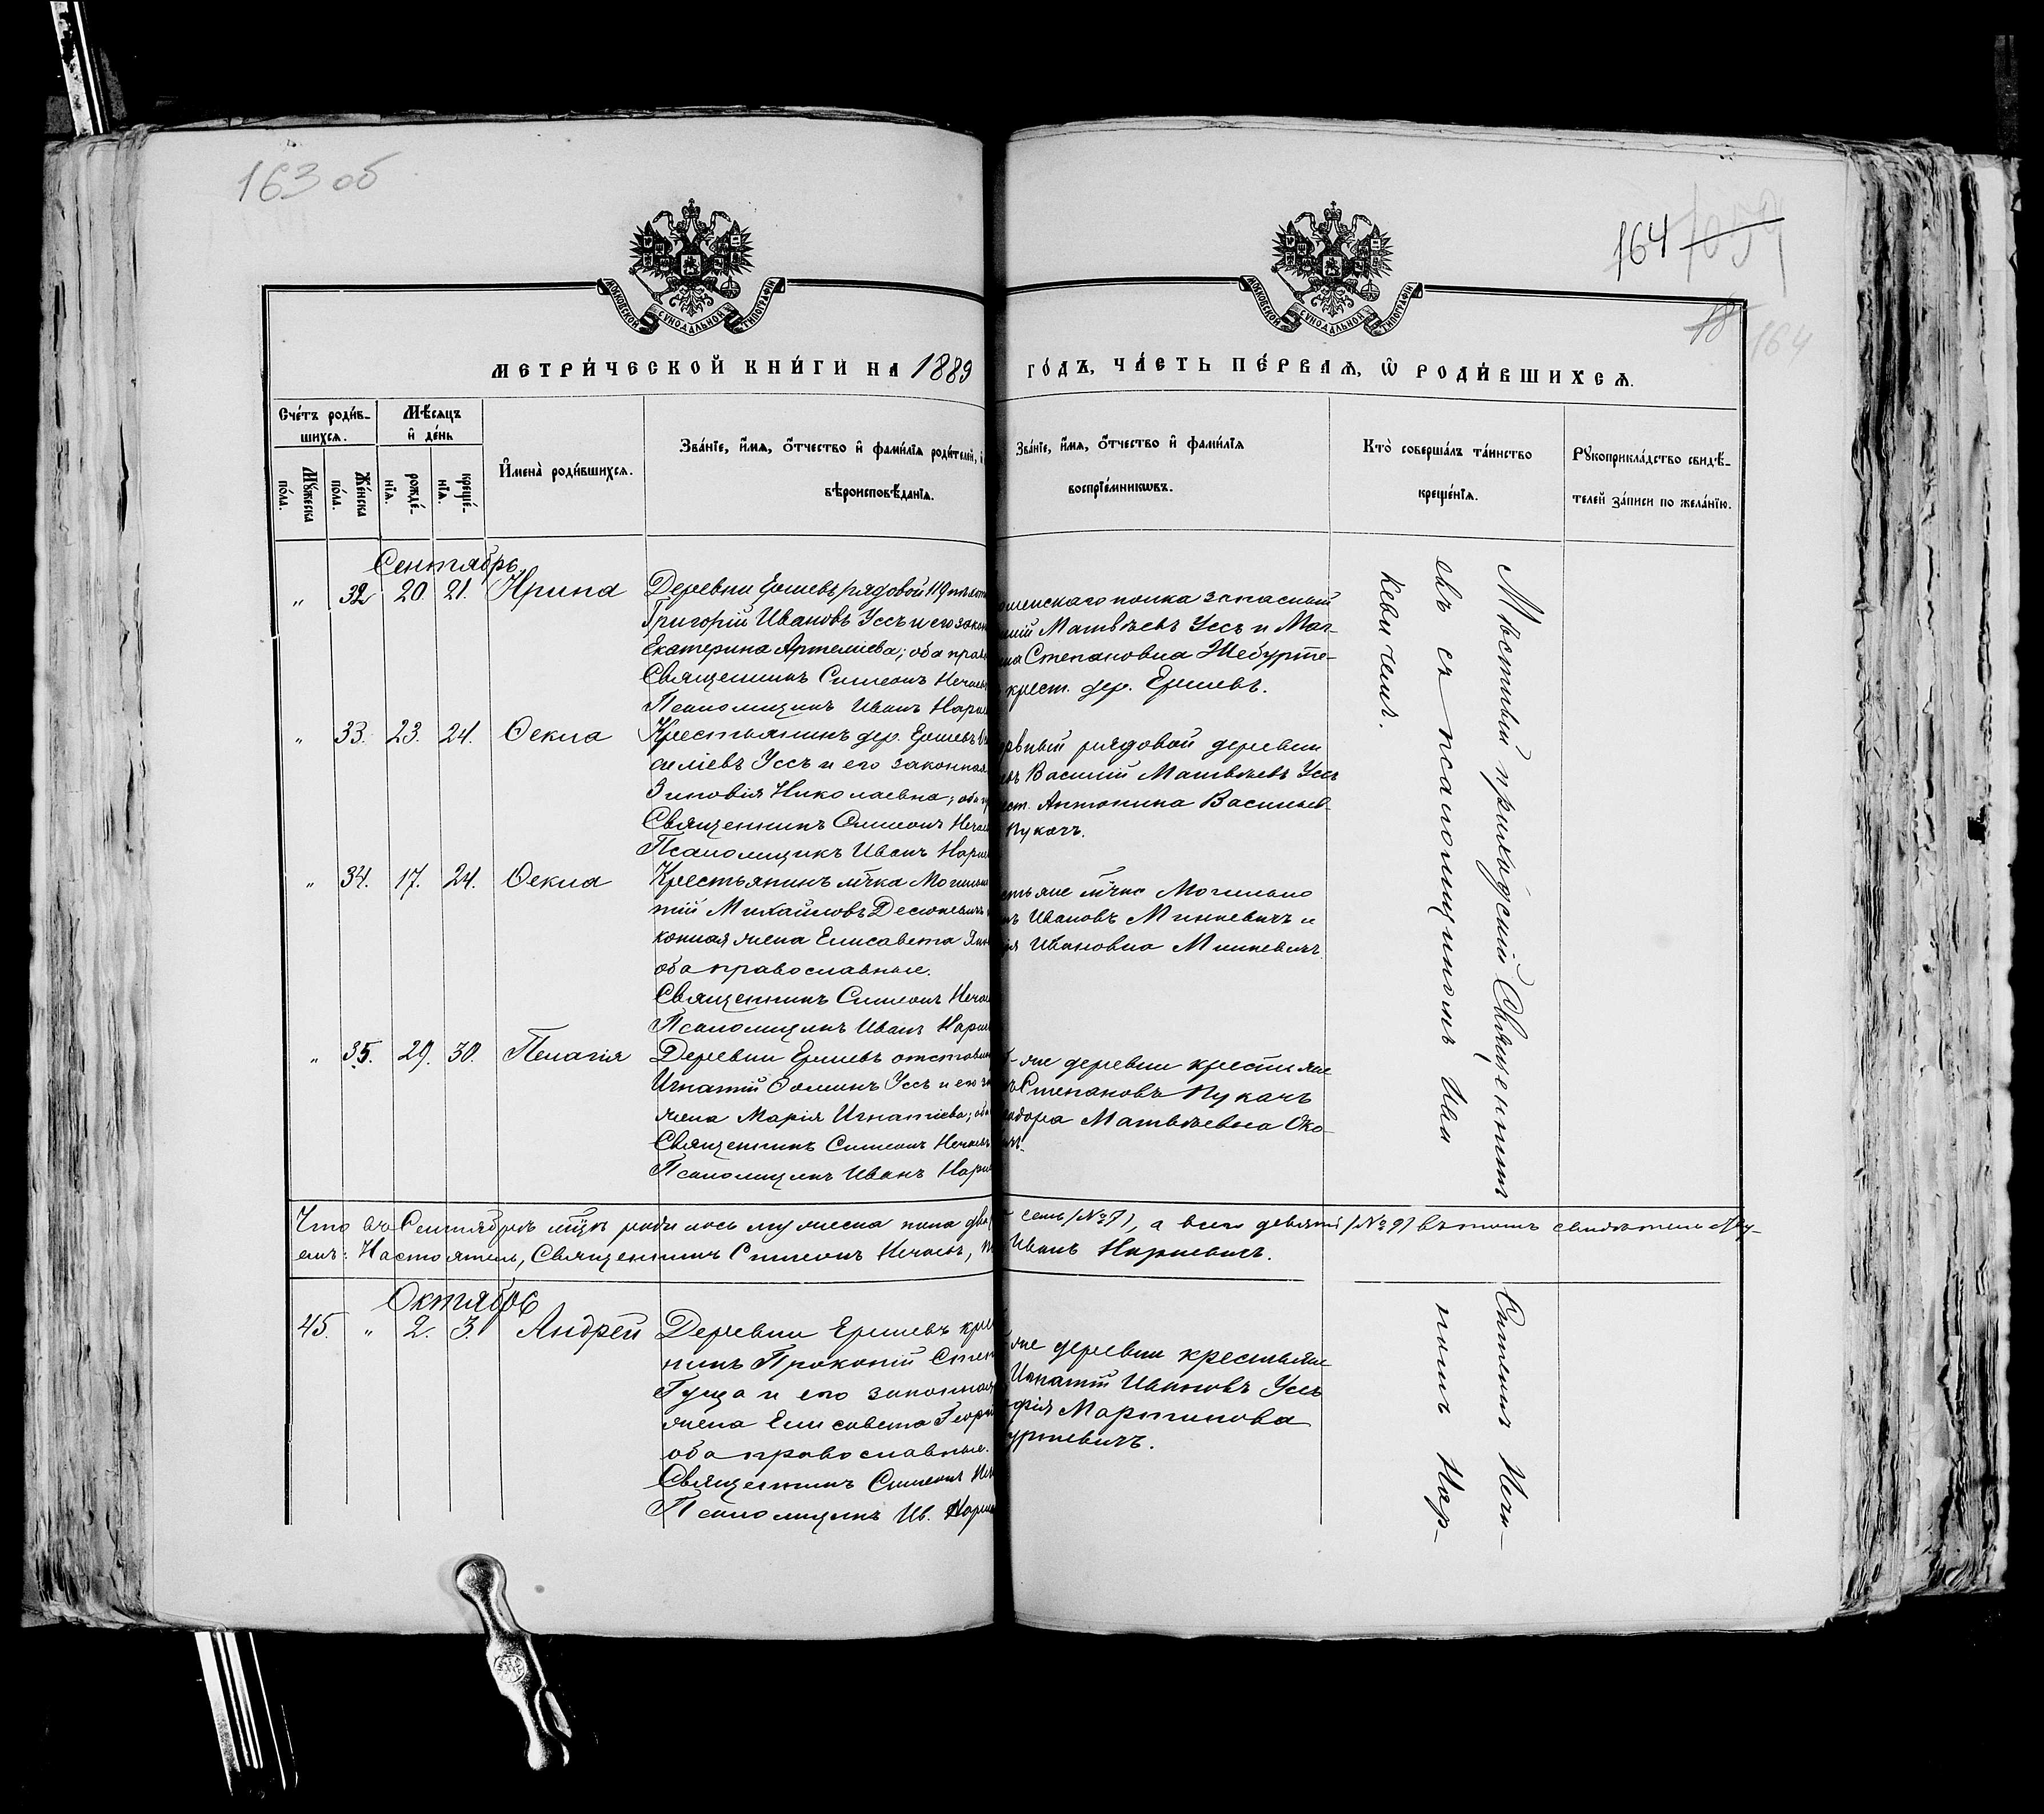 163 об
164 1059
18 164
МОСКОВСКОЙ СУНОДАЛЬНОЙ ТИПОГРАФІИ
МОСКОВСКОЙ СУНОДАЛЬНОЙ ТИПОГРАФІИ
МЕТРИ́ЧЕСКОЙ КНИ́ГИ НА 1889
ГО́ДЪ, ЧА́СТЬ ПЕ́РВАѦ, Ѡ҆ РОДИ́ВШИХСѦ.
Сче́тъ роди́в-
шихсѧ.
Мꙋ́жеска
по́ла.
Же́нска
по́ла.
Мѣ́сѧцъ
и҆ де́нь
рожде́-
нїѧ.
креще́-
нїѧ.
И҆мена̀ роди́вшихсѧ.
Зва́нїе, и҆́мѧ, ѻ҆́тчество и҆ фами́лїѧ роди́телей, и҆
вѣроисповѣ́данїѧ.
Зва́нїе, и҆́мѧ, ѻ҆́тчество и҆ фами́лїѧ
воспрїе́мникѡвъ.
Кто̀ соверша́лъ та́инство
креще́нїѧ.
Рꙋкоприкла́дство свидѣ́-
телей за́писи по жела́нїю.
Сентябрь
" 32 20. 21. Ирина
Деревни Ершевъ рядовой 119 пѣхот
Григорій Ивановъ Уссъ и его закон
Екатерина Артеміева; оба прав
Священникъ Симеонъ Нечаевъ
Псаломщикъ Иванъ Нарк
оменскаго полка запасный
илій Матвѣевъ Уссъ и Мат-
на Степановна Шебурте-
крест. дер. Ершевъ.
" 33. 23. 24. Ѳекла
Крестьянинъ дер. Ершевъ
аеліевъ Уссъ и его законная
Зиновія Николаевна; оба пр
Священникъ Симеонъ Неча
Псаломщикъ Иванъ Нарк
рядовой деревни
евъ Василій Матвѣевъ Уссъ
ест. Антонина Васильев-
Пукачъ.
" 34. 17. 24. Ѳекла
Крестьянинъ м̃чка Могильно
тій Михайловъ Десюкевичъ
конная жена Елисавета Яко
оба православные.
Священникъ Симеонъ Неча
Псаломщикъ Иванъ Нарк
стьяне м̃чка Могильно
нъ Ивановъ Минкевичъ и
ія Ивановна Минкевичъ.
" 35. 29. 30. Пелагія
Деревни Ершевъ отставн
Игнатій Ѳоминъ Уссъ и его за
жена Марія Игнатіева; оба
Священникъ Симеонъ Нечаевъ
Псаломщикъ Иванъ Нарк
-же деревни крестьяне
Степановъ Пукачъ
ѳдора Матвѣевна Око-
Мѣстный приходскій Священникъ Симеонъ Неча-
евъ съ псаломщикомъ Ива
номъ Нар-
кевичемъ.
Что въ Сентябрѣ м̃цѣ родилось мужеска пола два,
семь (№7), а всего девять (№9) въ томъ свидѣтельству-
емъ: Настоятель, Священникъ Симеонъ Нечаевъ,
Иванъ Наркевичъ.
Октябрь
45. " 2. 3. Андрей
Деревни Ершевъ крес
нинъ Прокопій Степ
Гуща и его законная
жена Елисавета Георг
оба православные.
Священникъ Симеонъ Неч
Псаломщикъ Ив. Нарк
же деревни крестьяне
Игнатій Ивановъ Уссъ
офія Мартинова
уртевичъ.